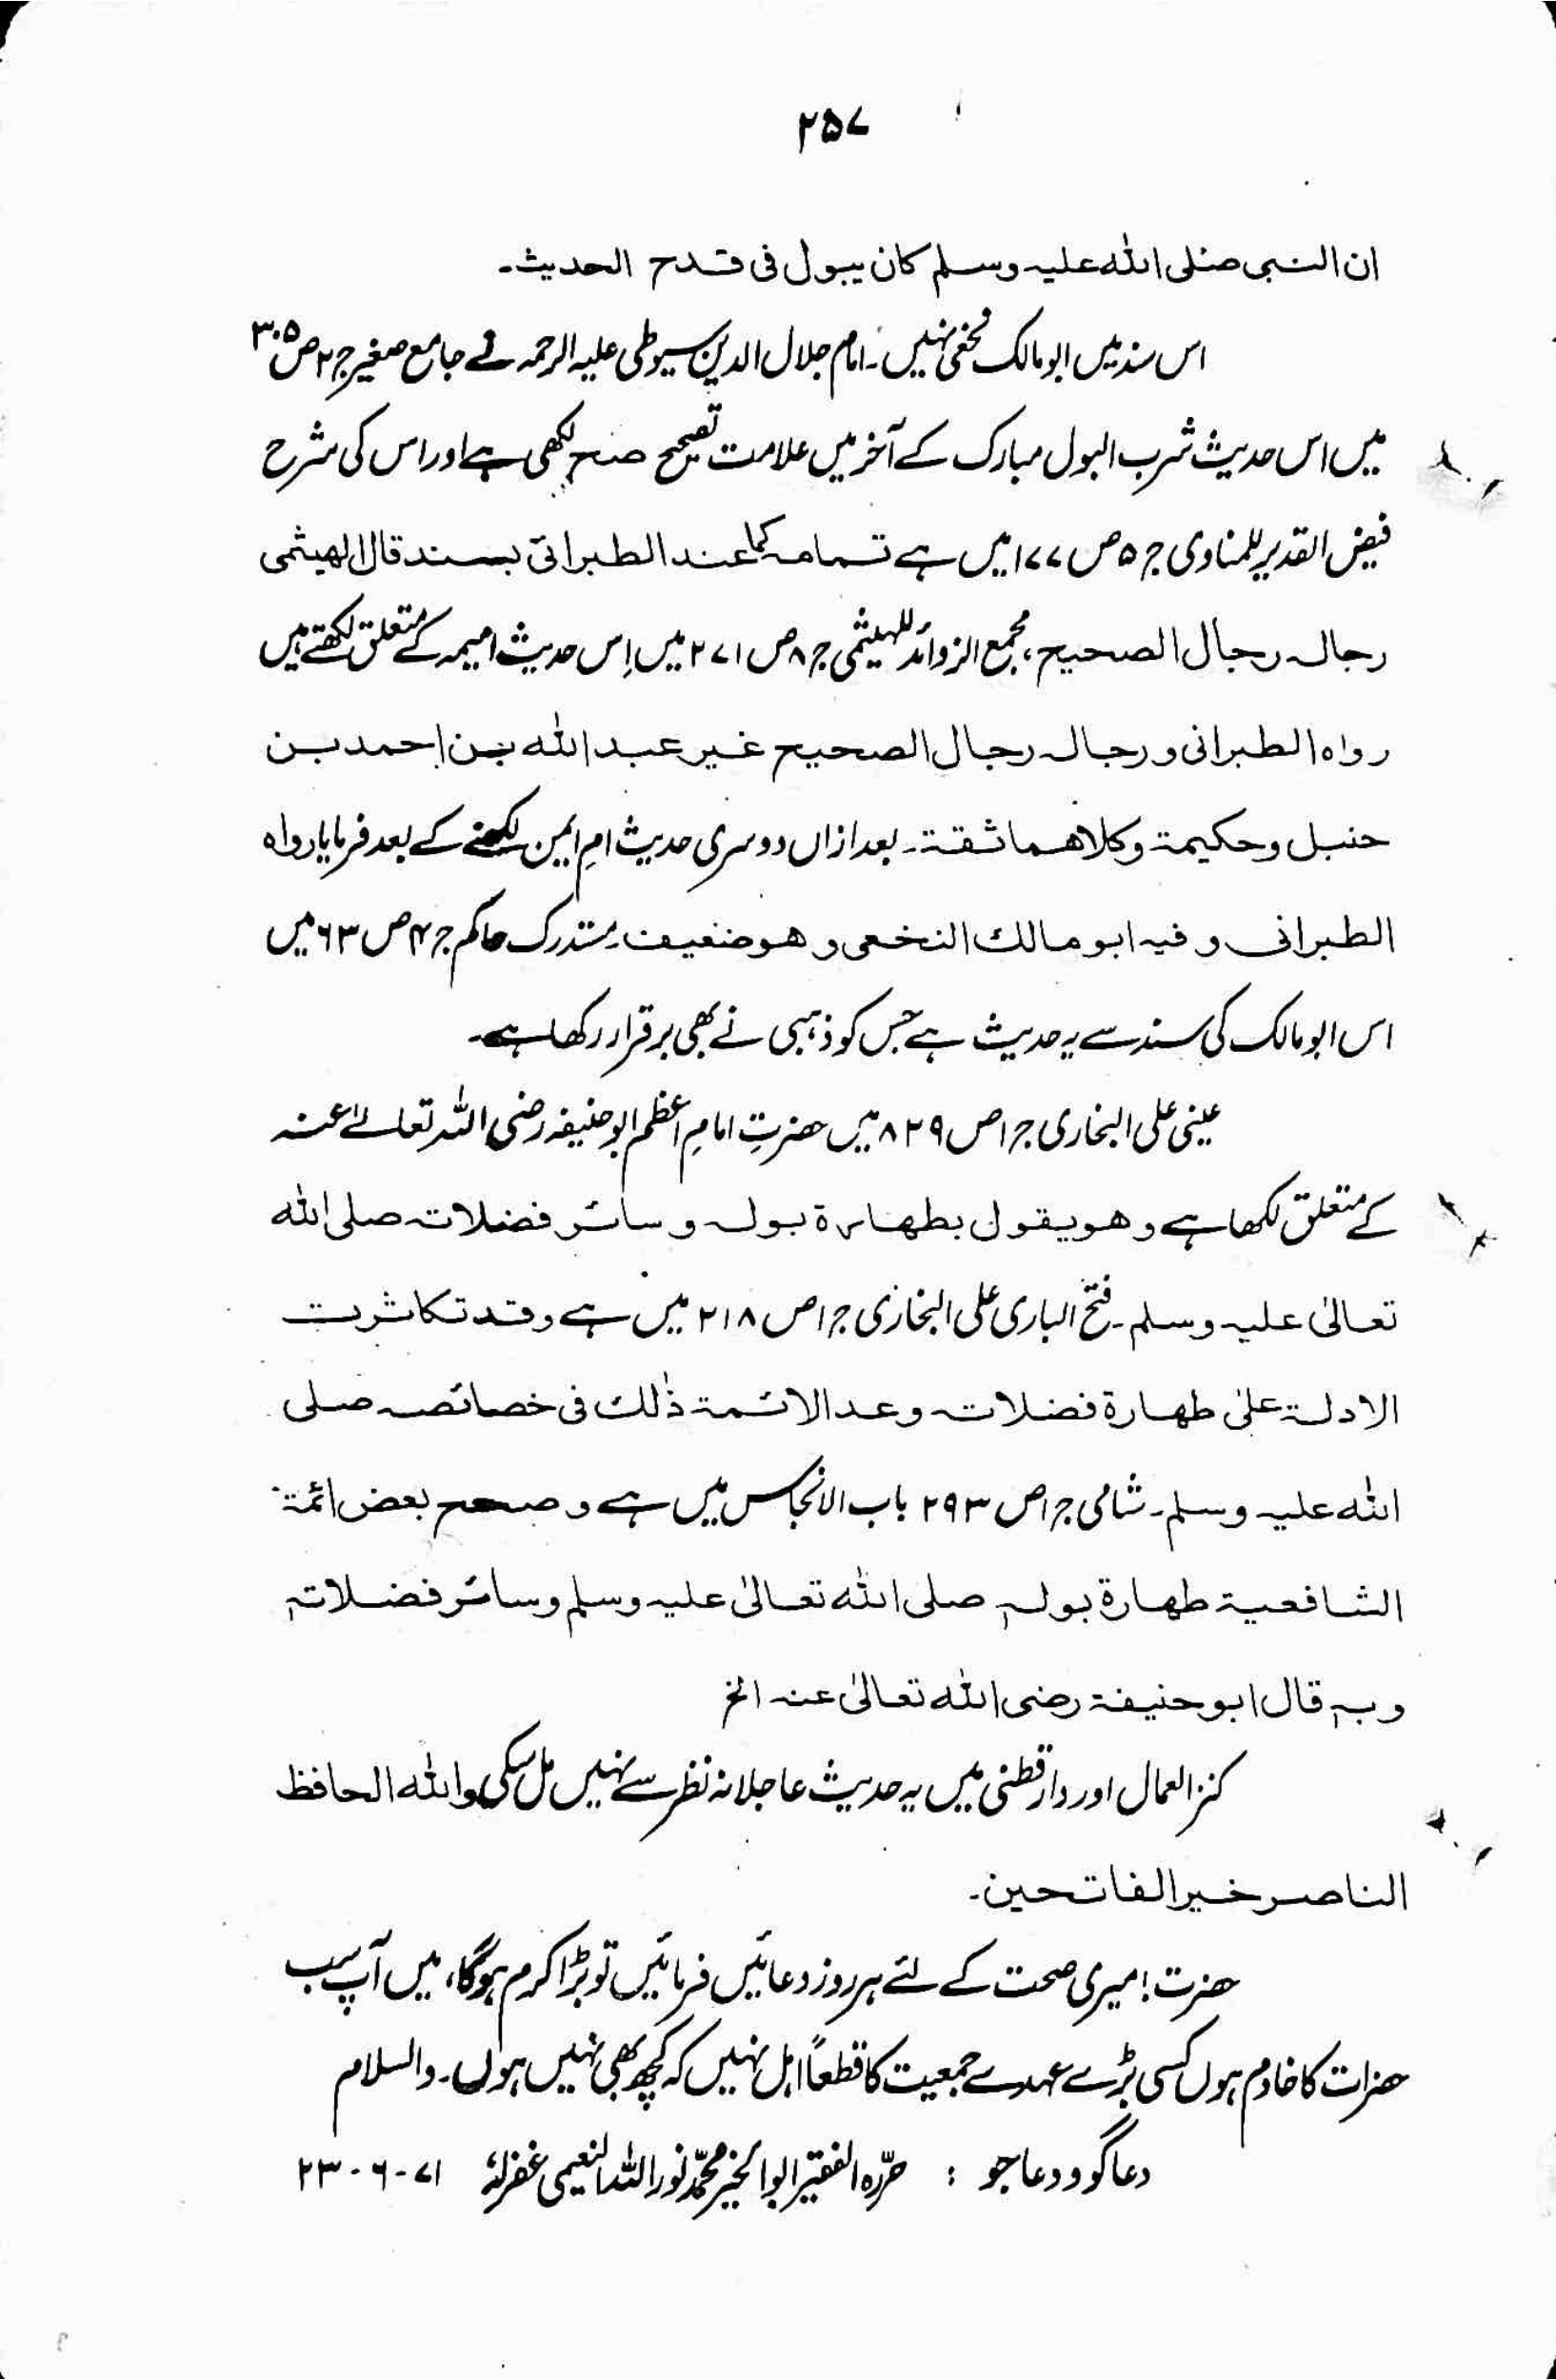 ۲۵۷
ان النبی صلی اللہ علیہ وسلم کان یبول فی قدح الحدیث۔
اس سند میں ابو مالک نخعی نہیں۔ امام جلال الدین سیوطی علیہ الرحمہ نے جامع صغیر ج۲ ص۳۰۵
میں اس حدیث شرب البول مبارک کے آخر میں علامت تصحیح صح لکھی ہے اور اس کی شرح
فیض القدیر للمناوی ج۵ ص۱۷۷ میں ہے تمامہ کما عند الطبرانی بسند قال الھیثمی
رجالہ رجال الصحیح، مجمع الزوائد للہیثمی ج۸ ص۲۷۱ میں اِس حدیث امیمہ کے متعلق لکھتے ہیں
رواہ الطبرانی ورجالہ رجال الصحیح غیر عبد اللہ بن احمد بن
حنبل وحکیمۃ وکلاھما ثقۃ۔ بعد ازاں دوسری حدیث امِ ایمن لکھنے کے بعد فرمایا رواہ
الطبرانی وفیہ ابو مالک النخعی وھو ضعیف۔ مستدرک حاکم ج۴ ص۶۳ میں
اس ابو مالک کی سند سے یہ حدیث ہے جس کو ذہبی نے بھی برقرار رکھا ہے۔
عینی علی البخاری ج۱ ص۸۲۹ میں حضرتِ امامِ اعظم ابو حنیفہ رضی اللہ تعالےٰ عنہ
کے متعلق لکھا ہے وھو یقول بطھارۃ بولہ وسائر فضلاتہ صلی اللہ
تعالیٰ علیہ وسلم۔ فتح الباری علی البخاری ج۱ ص۲۱۸ میں ہے وقد تکاثرت
الادلۃ علیٰ طھارۃ فضلاتہ وعد الائمۃ ذٰلک فی خصائصہ صلی
اللہ علیہ وسلم۔ شامی ج۱ ص۲۹۳ باب الانجاس میں ہے وصحح بعض ائمۃ
الشافعیۃ طھارۃ بولہ صلی اللہ تعالیٰ علیہ وسلم وسائر فضلاتہ
وبہ قال ابو حنیفۃ رضی اللہ تعالیٰ عنہ الخ
کنز العمال اور دارقطنی میں یہ حدیث عاجلانہ نظر سے نہیں مل سکی واللہ الحافظ
الناصر خیر الفاتحین۔
حضرت! میری صحت کے لئے ہر روز دعائیں فرمائیں تو بڑا کرم ہوگا، میں آپ سب
حضرات کا خادم ہوں کسی بڑے عہدے جمعیت کا قطعاً اہل نہیں کہ کچھ بھی نہیں ہوں۔ والسلام
دعاگو و دعا جو : حرّرہ الفقیر ابو الخیر محمّد نور اللہ النعیمی غفرلہٗ ۷۱-۶-۲۳